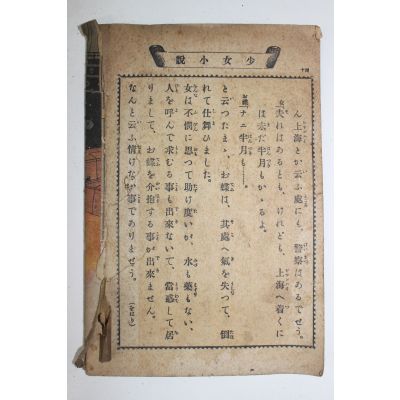 少女小説
四十
ん上海とか云ふ處にも、警察はあるでせう。
女「夫れはあるとも、けれども、上海へ着くに
は未だ半月もかゝるよ。
蝶「ナニ半月も……。
と云つたまゝ、お蝶は、其處へ氣を失つて、倒
れて仕舞ひました。
女は不憫に思つて助け度いが、水も藥もない、
人を呼んで求むる事も出來ないで、當惑して居
りまして、お蝶を介抱する事が出來ません。
なんと云ふ情けない事でありませう。
(をはり)